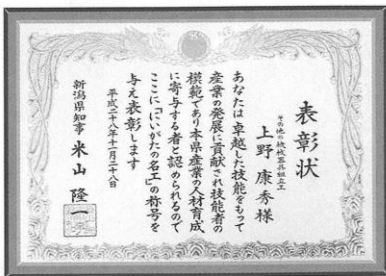 表彰状
その他の機械器具組立工
上野康秀様
あなたは卓越した技能をもって
産業の発展に貢献され技能者の
模範であり本県産業の人材育成
に寄与する者と認められるので
ここに「にいがたの名工」の称号を
与え表彰します
平成二十八年十一月二十八日
新潟県知事 米山隆一